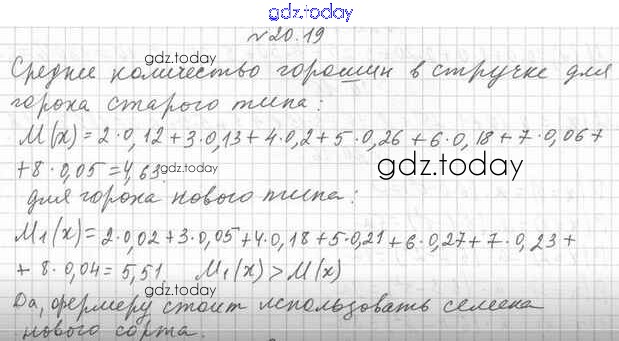 gdz.today
№20.19
gdz.today
Среднее количество горошин в стручке для
gdz.today
гороха старого типа:
M(x)=2·0,12+3·0,13+4·0,2+5·0,26+6·0,18+7·0,06+
gdz.today
+8·0,05=4,63.
gdz.today
для гороха нового типа:
M₁(x)=2·0,02+3·0,05+4·0,18+5·0,21+6·0,27+7·0,23+
gdz.today
+8·0,04=5,51, M₁(x)>M(x)
gdz.today
Да, фермеру стоит использовать семена
gdz.today
нового сорта.